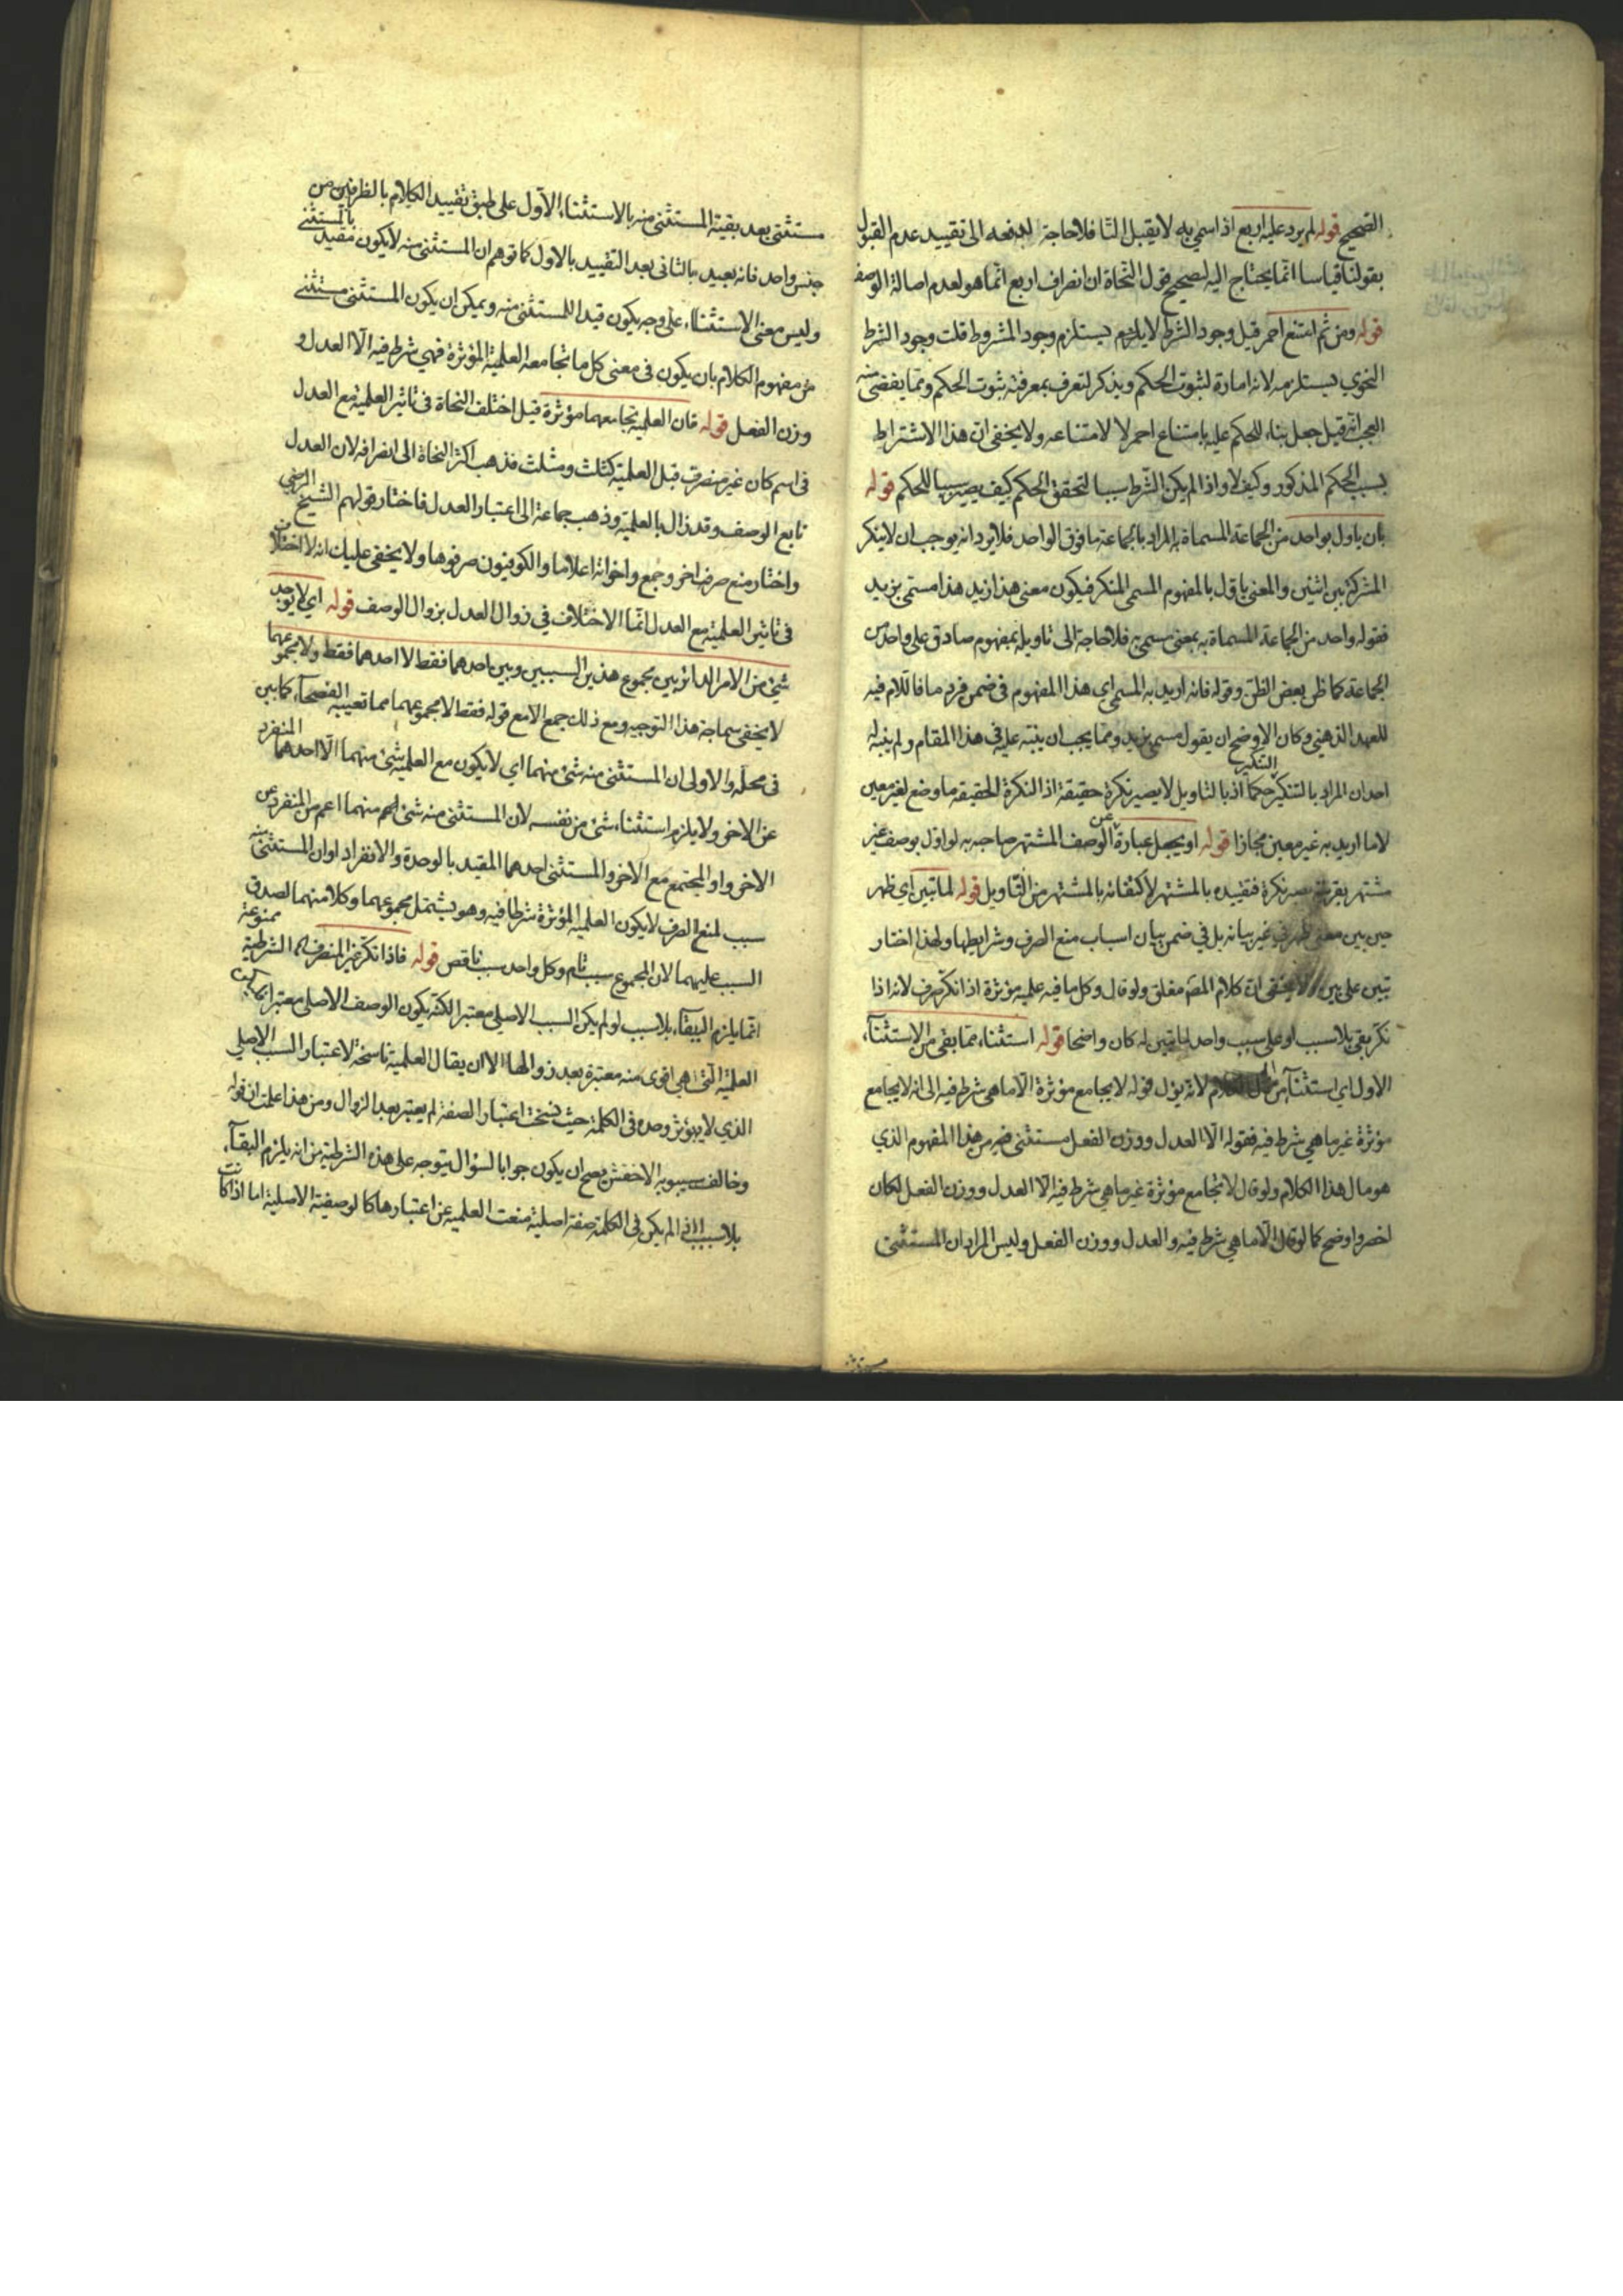 الصحيح قوله لم يرد عليه اربع اذا سمي به لا يقبل التا فلا حاجة لدفعه الى تقييد عدم القبول
بقولنا قياسا انما يحتاج اليه لصحيح قول النحاة ان انصراف اربع انما هو لعدم اصالة الوصف
قوله ومن ثم امتنع احمر قيل وجود الشرط لا يلزم يستلزم وجود المشروط قلت وجود الشرط
النحوي يستلزمه لانه امارة لثبوت الحكم ويذكر لتعرف بمعرفته ثبوت الحكم ومما يفضى منه
العجب انه قيل جعل بناء للحكم عليه بامتناع احمر لا لامتناعه ولا يخفى ان هذا الاشتراط
بسبب الحكم المذكور وكيف لا واذا لم يكن الشرط سببا لتحقق الحكم كيف يصير سببا للحكم قوله
بان ياول بواحد من الجماعة المسماة به المراد بالجماعة ما فوق الواحد فلا يرد انه يوجب ان لا ينكر
المشترك بين اثنين والمعنى ياول بالمفهوم المسمى المنكر فيكون معنى هذا زيد هذا مسمى بزيد
فقوله واحد من الجماعة المسماة به بمعنى مسمى به فلا حاجة الى تاويله بمفهوم صادق على واحد من
الجماعة كما ظن بعض الظن وقوله فانه اريد به المسمى اي هذا المفهوم في ضمن فرد ما فاللام فيه
للعهد الذهني وكان الاوضح ان يقول مسمى بزيد ومما يجب ان ينبه عليه في هذا المقام ولم ينبه له
احد ان المراد بالتنكير التنكير حكما اذ بالتاويل لا يصير نكرة حقيقة اذ النكرة الحقيقه ما وضع لغير معين
لا ما اريد به غير معين مجازا قوله او يجعل عبارة عن الوصف المشتهر صاحبه به لو اول بوصف غير
مشتهر بقرينة يصير نكرة فقيده بالمشتهر لاكتفائه بالمشتهر من التاويل قوله لما تبين اي ظهر
حين بين معنى ظهر في غير بيانه بل في ضمن بيان اسباب منع الصرف وشرايطها ولهذا اختار
تبين على بين ولا يخفى ان كلام المص مغلق ولو قال وكل ما فيه علمية مؤثرة اذا نكر صرف لانه اذا
نكر بقى بلا سبب او على سبب واحد لما تبين له كان واضحا قوله استثناء مما بقى من الاستثناء
الاول اي استثناء من كل الكلام لانه يؤل قوله لا يجامع مؤثرة الا ما هي شرط فيه الى انه لا يجامع
مؤثرة غير ما هي شرط فيه فقوله الا العدل ووزن الفعل مستثنى من هذا المفهوم الذي
هو مال هذا الكلام ولو قال لا تجامع مؤثرة غير ما هي شرط فيه الا العدل ووزن الفعل لكان
اخصر واوضح كما لو قال الا ما هي شرط فيه والعدل ووزن الفعل وليس المراد ان المستثنى
مستثنى بعد بقية المستثنى منه بالاستثناء الاول على طبق تقييد الكلام بالظرفين من
جنس واحد فانه يعيد بالثانى بعد التقييد بالاول كما توهم ان المستثنى منه لا يكون مقيد بالمستثنى
وليس معنى الاستثناء على وجه يكون قيدا للمستثنى منه ويمكن ان يكون المستثنى مستثنى
من مفهوم الكلام بان يكون فى معنى كل ما تجامعه العلمية المؤثرة فهي شرط فيه الا العدل و
وزن الفعل قوله فان العلمية تجامعهما مؤثرة قيل اختلف النحاة فى تاثير العلمية مع العدل
فى اسم كان غير منصرف قبل العلمية كثلث ومثلث فذهب اكثر النحاة الى انصرافه لان العدل
تابع الوصف وقد زال بالعلمية وذهب جماعة الى اعتبار العدل فاختار قولهم الشيخ الرضي
واختار منع صرف اخر وجمع واخواته اعلاما والكوفيون صرفوها ولا يخفى عليك انه لا اختلاف
فى تاثير العلمية مع العدل انما الاختلاف في زوال العدل بزوال الوصف قوله اي لا يوجد
شئ من الامر الدائر بين مجموع هذين السببين وبين احدهما فقط الا احدهما فقط ولا مجموعهما
لا يخفى سماجة هذا التوجيه ومع ذلك جمع الا مع قوله فقط لا مجموعهما مما تعيبه الفصحاء كما بين
فى محله والاولى ان المستثنى منه شئ منهما اي لا يكون مع العلمية شئ منهما الا احدهما المنفرد
عن الاخر ولا يلزم استثناء شئ من نفسه لان المستثنى منه شئ منهما اعم من المنفرد عن
الاخر او المجتمع مع الاخر والمستثنى احدهما المقيد بالوحدة والانفراد او ان المستثنى منه
سبب لمنع الصرف لا يكون العلمية المؤثرة شرطا فيه وهو يشتمل مجموعهما وكلا منهما لصدق
السبب عليهما لان المجموع سبب تام وكل واحد سبب ناقص قوله فاذا نكر غير المنصرف الشرطية ممنوعة
انما يلزم البقاء بلا سبب لو لم يكن السبب الاصلي معتبرا لكنه يكون الوصف الاصلي معتبرا
العلمية التى هي اقوى منه معتبرة بعد زوالها الا ان يقال العلمية ناسخة لاعتبار السبب الاصلي
الذي لا يؤثر وحده فى الكلمة حيث نسخت اعتبار الصفة لم يعتبر بعد الزوال ومن هذا علمت ان قوله
وخالف سيبويه الاخفش يصح ان يكون جوابا لسؤال يتوجه على هذه الشرطية من انه يلزم البقاء
بلا سبب اذا لم يكن فى الكلمة صفة اصلية منعت العلمية عن اعتبارها كالوصفية الاصلية اما اذا كانت